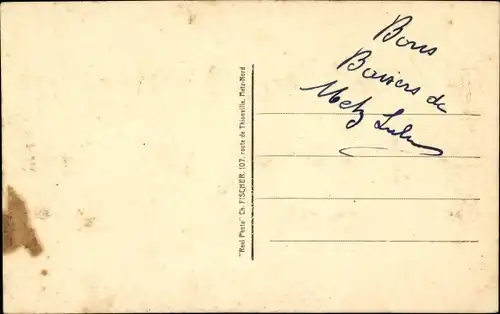 Bons
Baisers de
Metz Lulu
"Real Photo" Ch. FISCHER, 107, route de Thionville, Metz-Nord